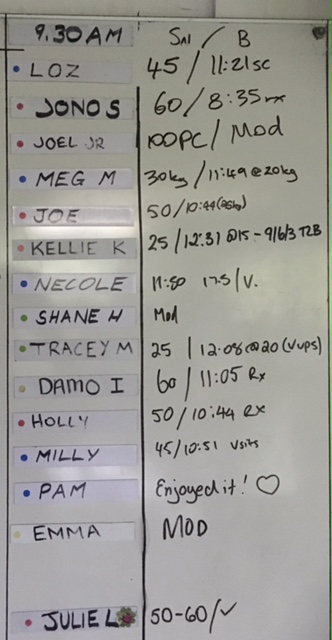 9.30AM Sn / B
LOZ 45 / 11:21 sc
JONO S 60 / 8:35 rx
JOEL JR 100PC / Mod
MEG M 30kg / 11:49 @ 20kg
JOE 50 / 10:44
KELLIE K 25 / 12:31 @15 - 9/6/3 T2B
NECOLE 11:50 17.5 / V.
SHANE H Mod
TRACEY M 25 | 12:08 @20 (Vups)
DAMO I 60 / 11:05 Rx
HOLLY 50 / 10:44 RX
MILLY 45 / 10:51 Vsits
PAM Enjoyed it! ♡
EMMA MOD
JULIE L 50-60/✓